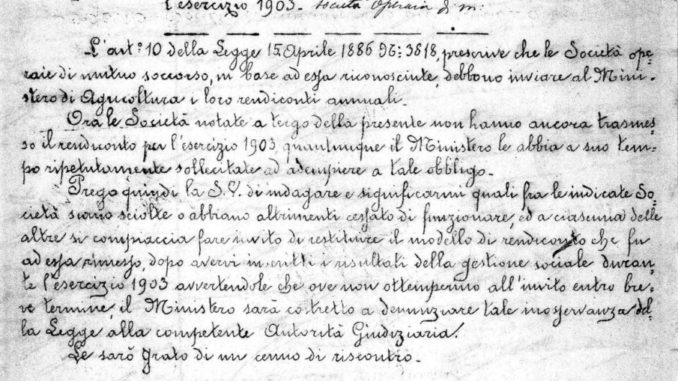 l'esercizio 1903. Società Operaia di m.
L'art.° 10 della Legge 15 Aprile 1886 N: 3818, prescrive che le Società ope-
raie di mutuo soccorso, in base ad essa riconosciute, debbono inviare al Mini-
stero di Agricoltura i loro rendiconti annuali.
Ora le Società notate a tergo della presente non hanno ancora trasmes-
so il rendiconto per l'esercizio 1903, quantunque il Ministero le abbia a suo tem-
po ripetutamente sollecitate ad adempiere a tale obbligo.
Prego quindi la S.V. di indagare e significarmi quali fra le indicate So-
cietà siano sciolte o abbiano altrimenti cessato di funzionare, ed a ciascuna delle
altre si compiaccia fare invito di restituire il modello di rendiconto che fu
ad essa rimesso, dopo avervi inscritti i risultati della gestione sociale duran-
te l'esercizio 1903 avvertendole che ove non ottemperino all'invito entro bre-
ve termine il Ministero sarà costretto a denunziare tale inosservanza del-
la Legge alla competente Autorità Giudiziaria.
Le sarò grato di un cenno di riscontro.